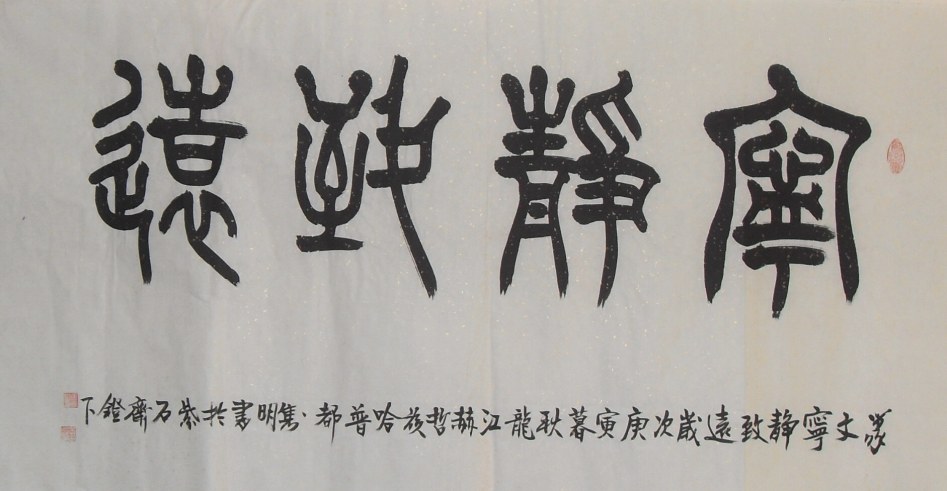 寧靜致遠
篆文寧静致遠歲次庚寅暮秋龍江赫哲族哈普都·雋明書於紫石齋鐙下